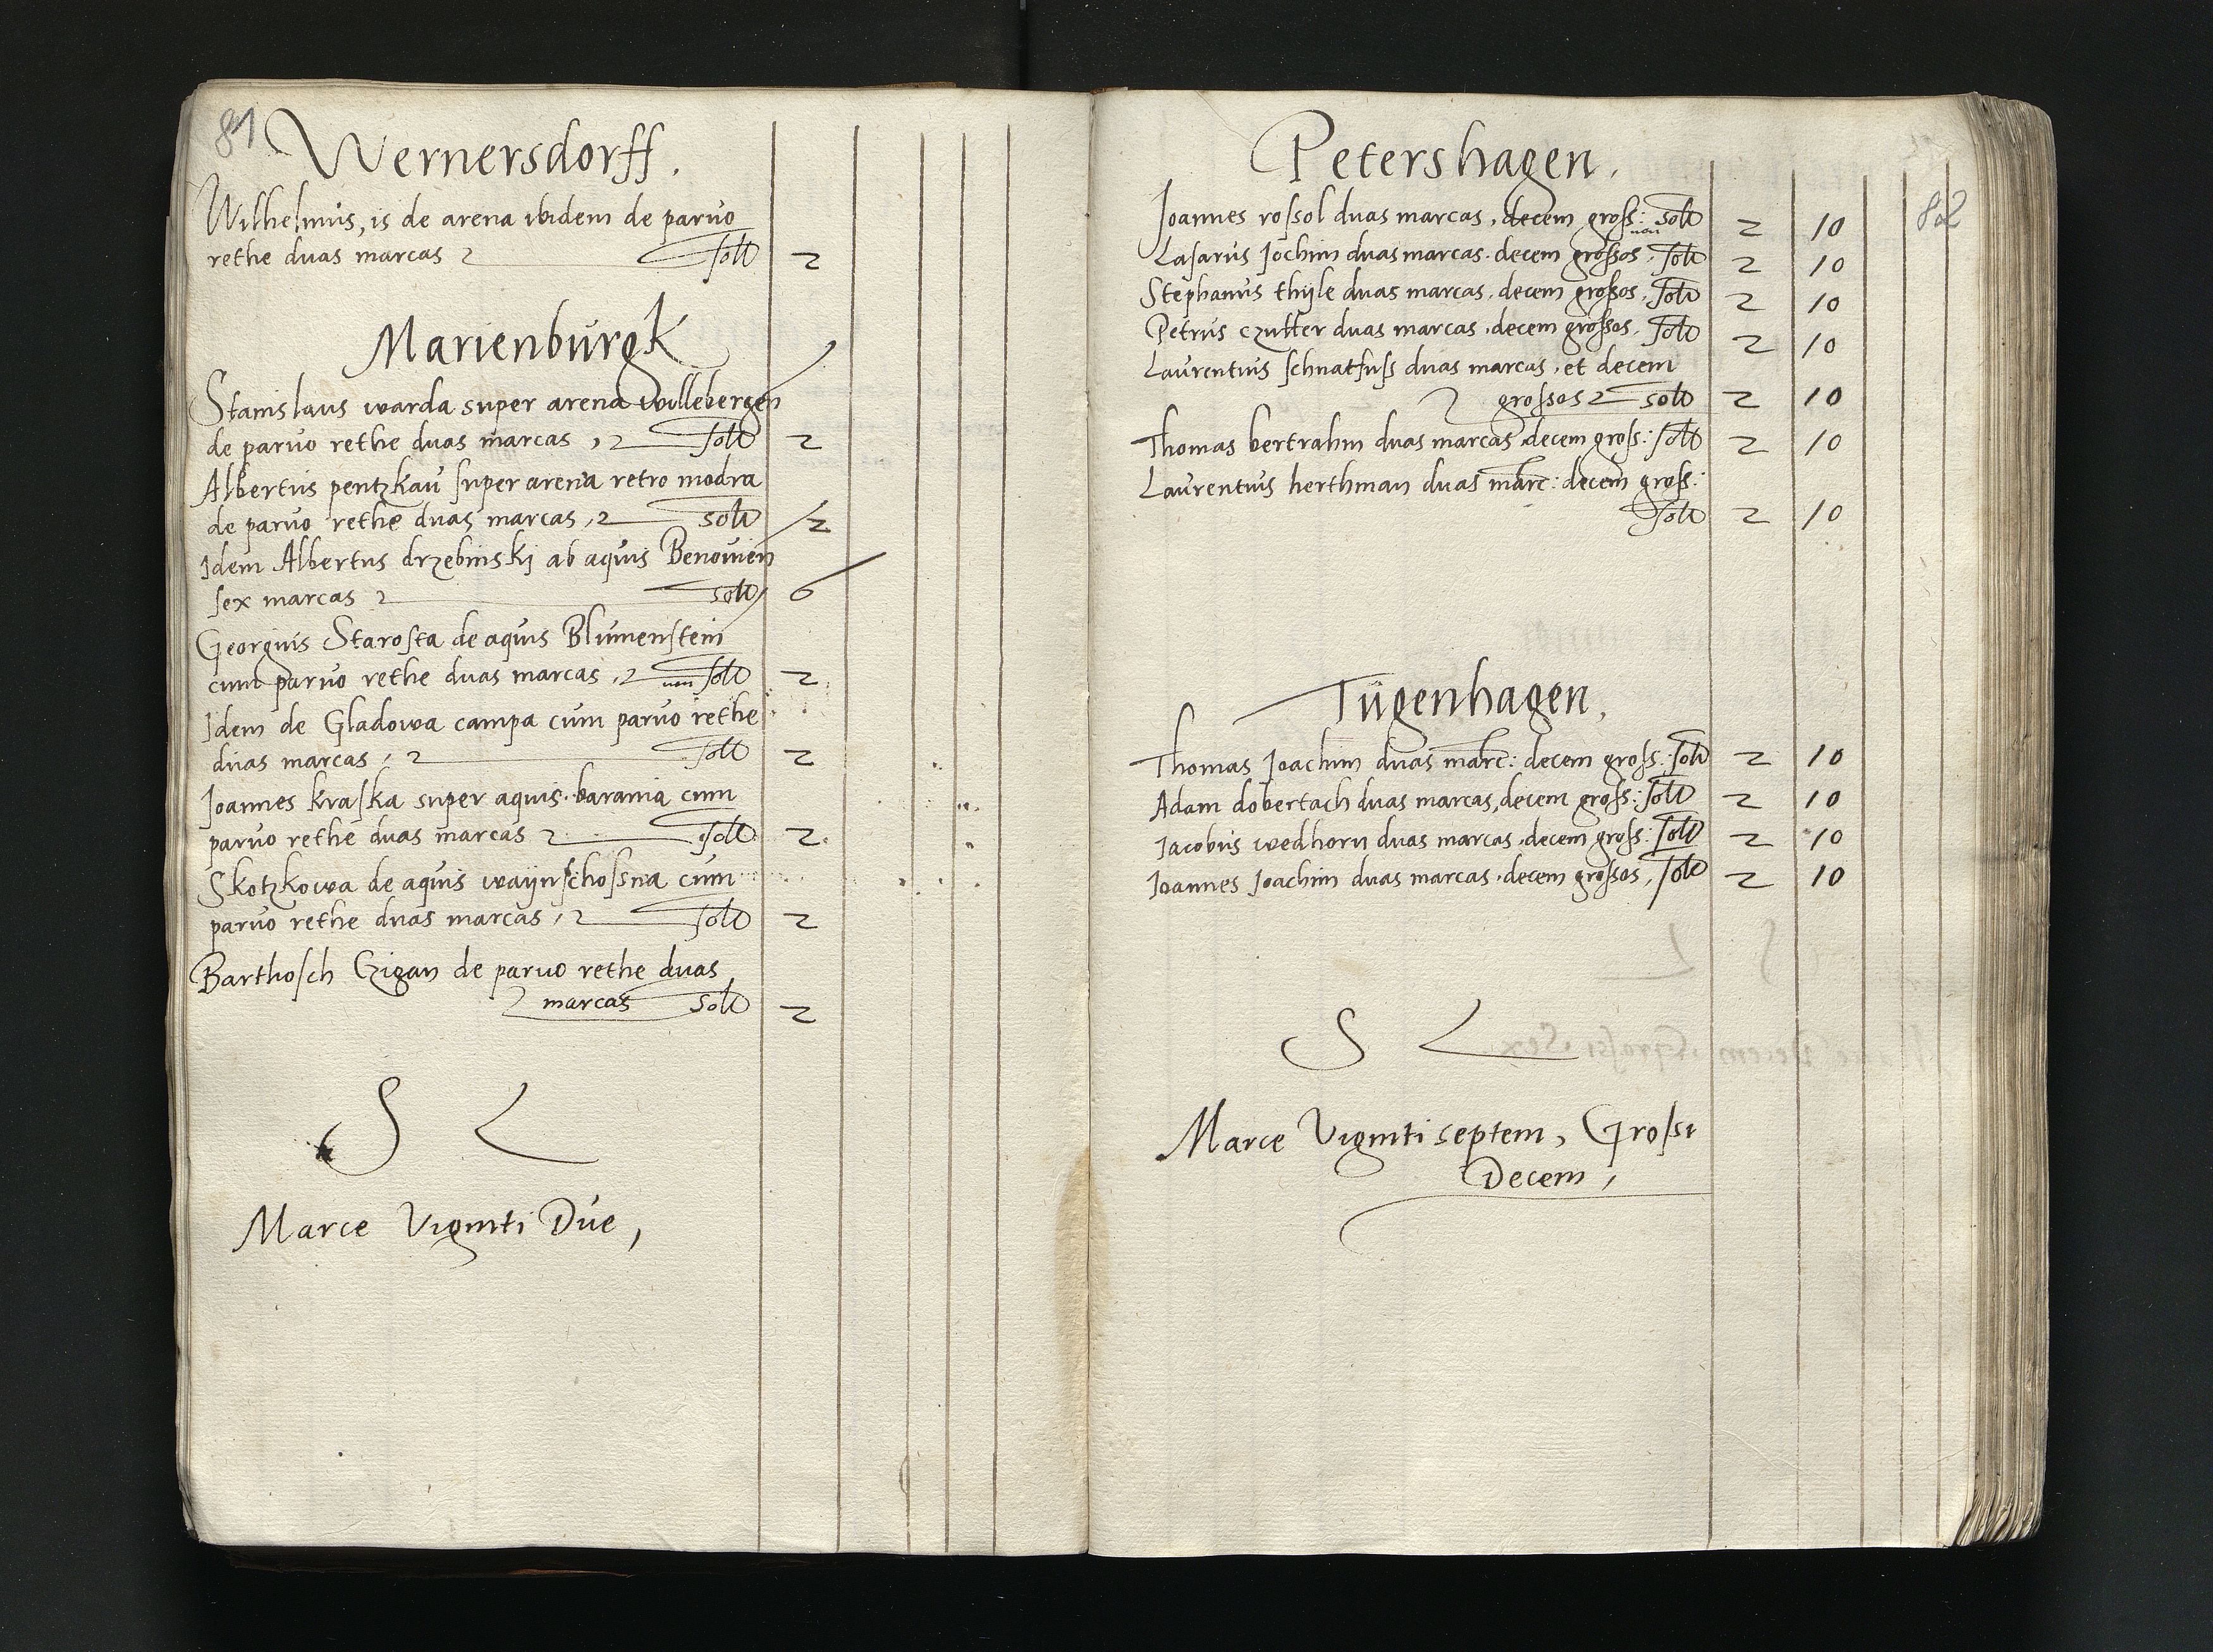 81
Wernersdorff.
Wilhelmus, is de arena ibidem de paruo
rethe duas marcas 2 solt 2
Marienburgk
Stanislaus warda super arena willebergen
de paruo rethe duas marcas, 2 solt 2
Albertus pentzkau super arena retro modra
de paruo rethe duas marcas, 2 solt 2
Idem Albertus drzebinskj ab aquis Benouien
sex marcas 2 solt 6
Georgius Starosta de aquis Blumenstein
cum paruo rethe duas marcas, 2 non solt 2
Idem de Gladowa campa cum paruo rethe
duas marcas, 2 solt 2
Joannes kraska super aquis barania cum
paruo rethe duas marcas 2 solt 2
Skotzkowa de aquis waijnschosna cum
paruo rethe duas marcas, 2 solt 2
Barthosch Czigan de paruo rethe duas
2 marcas solt 2
S L
Marce Viginti Due,
82
Petershagen.
Joannes rossol duas marcas, decem gross: solt 2 10
Lasarus Jochim duas marcas. decem grossos, non solt 2 10
Stephanus thijle duas marcas, decem grossos, solt 2 10
Petrus czutter duas marcas, decem grossos, solt 2 10
Laurentius schnatfuss duas marcas, et decem
2 grossos 2 solt 2 10
Thomas bertrahm duas marcas decem gross: solt 2 10
Laurentius herthman duas marc: decem gross:
solt 2 10
Tugenhagen.
Thomas Joachim duas marc: decem gross: solt 2 10
Adam dobertach duas marcas, decem gross: solt 2 10
Jacobus wedhorn duas marcas, decem gross: solt 2 10
Joannes Joachim duas marcas, decem grossos, solt 2 10
S L
Marce Viginti septem, Grossi
Decem,